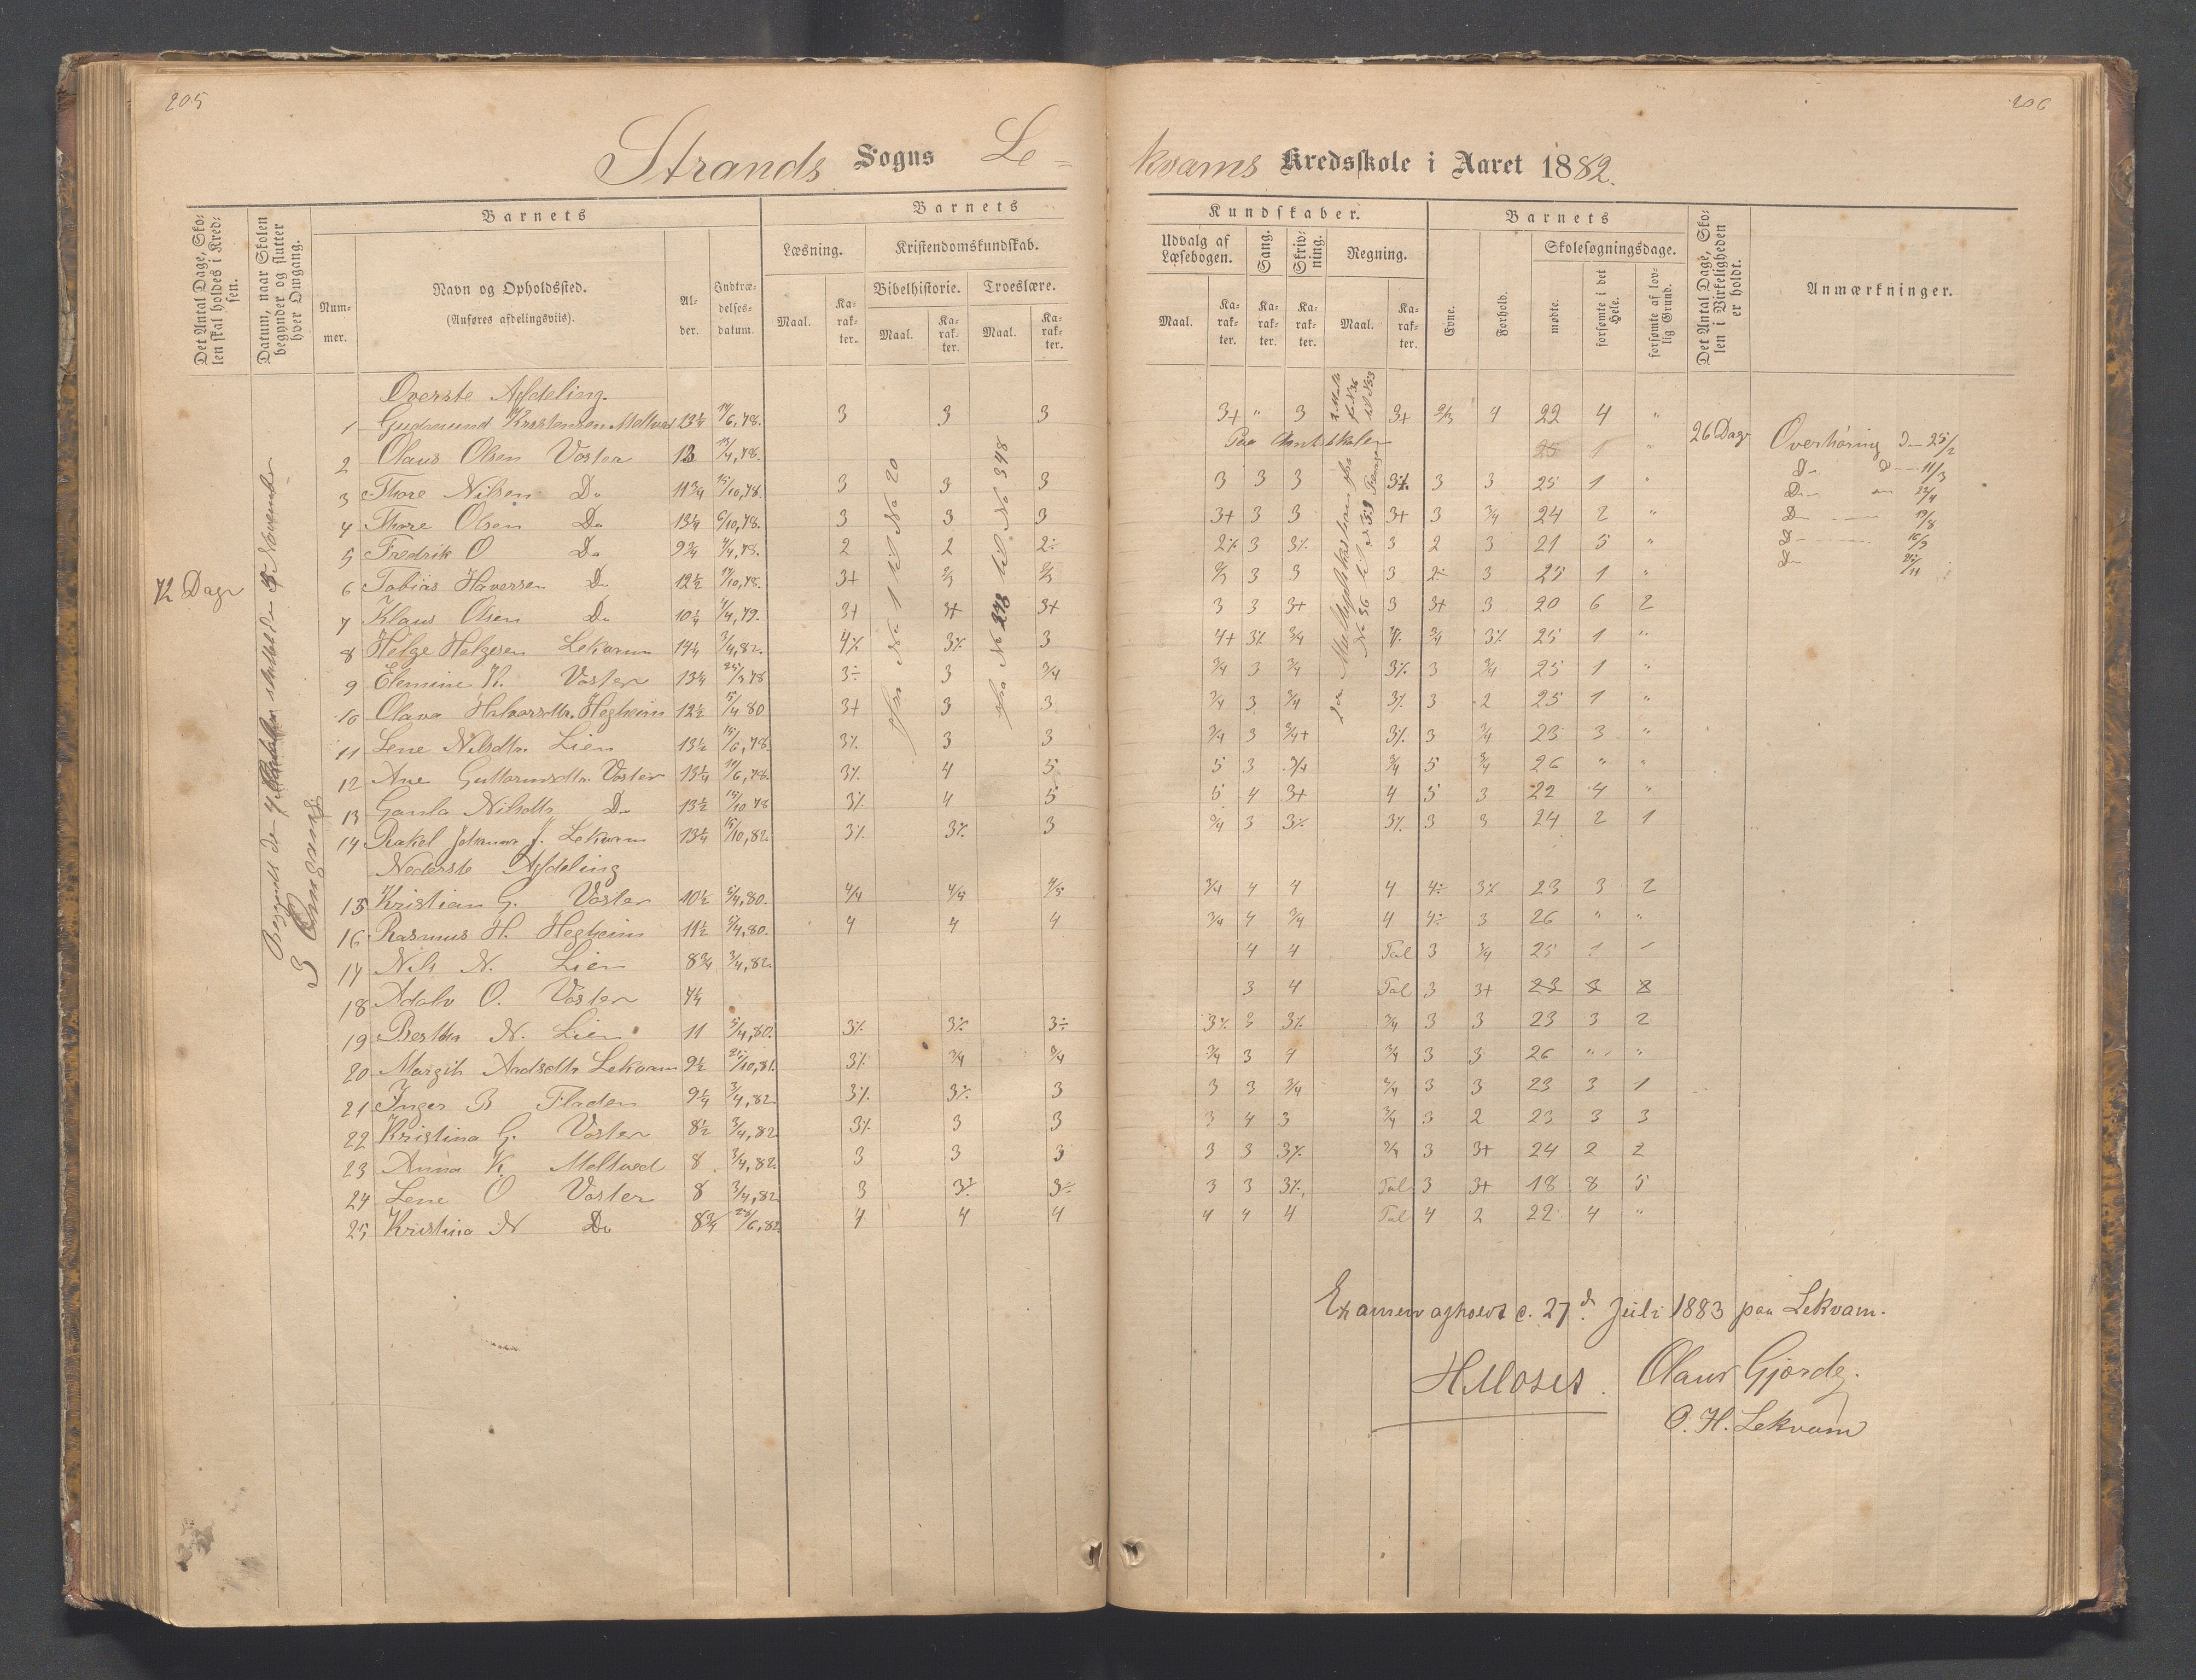 205
206
Strands Sogns Le-
kvams Kredsskole i Aaret 1882.
Det Antal Dage, Sko-
len skal holdes i Kred-
sen.
Datum, naar Skolen
begynder og slutter
hver Omgang.
Barnets
Num-
mer.
Navn og Opholdssted.
(Anføres afdelingsviis).
Al-
der.
Indtræ-
delses-
datum.
Barnets
Læsning.
Maal.
Ka-
rak-
ter.
Kristendomskundskab.
Bibelhistorie.
Maal.
Ka-
rak-
ter.
Troeslære.
Maal.
Ka-
rak-
ter.
Kundskaber.
Udvalg af
Læsebogen.
Maal.
Ka-
rak-
ter.
Sang.
Ka-
rak-
ter.
Skriv-
ning.
Ka-
rak-
ter.
Regning.
Maal.
Ka-
rak-
ter.
Barnets
Evne.
Forhold.
Skolesøgningsdage.
mødte.
forsømte i det
Hele.
forsømte af lov-
lig Grund.
Det Antal Dage, Sko-
len i Virkeligheden
er holdt.
Anmærkninger.
72 Dage
3 Omgang
fra No 1 til No 20
fra No 248 til No 348
Øverste Afdeling.
1 Gudmund Kristensen Meltved 13¼ 17/6,78. 3 3 3 3+ " 3 3+ 2/3 4 22 4 "
26 Dage
2 Olaus Olsen Voster 13 13/4,78. Paa Amtskolen 25 1 "
3 Thore Nilsen Do 11¾ 15/10,78. 3 3 3 3 3 3 3% 3 3 25 1 "
4 Thore Olsen Do 13¼ 6/10,78. 3 3 3 3+ 3 3 3+ 3 3/4 24 2 "
5 Fredrik O Do 9¾ 4/4,78. 2 2 2÷ 2% 3 3% 3 2 3 21 5 "
6 Tobias Haversen Do 12½ 17/10,78. 3+ 2/3 2/3 2/3 3 3 3 2÷ 3 25 1 "
7 Klaus Olsen Do 10¼ 4/4,79. 3+ 3+ 3+ 3 3 3+ 3 3+ 3 20 6 2
8 Helge Helgesen Lekvam 14¼ 3/4,82. 4% 3% 3 4+ 3% 3/4 4% 3/4 3% 25 1 "
9 Elemine K. Voster 13¼ 3÷ 3 3/4 3/4 3 3/4 3% 3 3/4 25 1 "
10 Olava Halvorsdtr. Hegheim 12½ 5/4 80 3+ 3 3 3/4 3 3/4 3% 3 2 25 1 "
11 Lene Nilsdtr. Lien 13½ 15/6,78. 3% 3 3 3/4 3 3/4+ 3% 3 3/4 23 3 "
12 Ane Guttormsdtr. Voster 13¼ 17/6,78. 3% 4 5 5 3 3/4 3/4 5 3/4 26 " "
13 Gunla Nilsdtr. Do 13½ 15/10 78 3% 4 5 5 4 3+ 4 5 3 22 4 "
14 Rakel Johanna J. Lekvam 13¼ 15/10,82. 3% 3% 3 3/4 3 3% 3% 3 3 24 2 1
Nederste Afdeling
15 Kristian G. Voster 10½ 5/4,80. 4/4 4/5 4/5 3/4 4 4 4 4÷ 3% 23 3 2
16 Rasmus H. Hegheim 11½ 5/4,80. 4 4 4 3/4 4 3/4 4 4÷ 3 26 " "
17 Nils N. Lien 8¾ 3/4,82. 4 4 Tal 3 3/4 25 1 1
18 Adolv O. Voster 7¼ 3 4 Tal 3 3+ 23 3 2
19 Bertha N. Lien 11 5/4,80. 3% 3% 3÷ 3% 3 3% 3/4 3 3 23 3 2
20 Margith Aadsdtr Lekvam 9½ 21/10,81. 3% 3/4 3/4 3/4 3 4 3/4 3 3 26 " "
21 Inger B Fladen 9¼ 3/4,82. 3% 3% 3 3 3 3/4 3/4 3 3 23 3 1
22 Kristina G. Voster 8½ 3/4,82. 3% 3 3 3 4 3 3/4 3 2 23 3 3
23 Anna K. Meltved 8 3/4,82. 3 3 3 3 3 3% 3/4 3 3+ 24 2 2
24 Lene O Voster 8 3/4,82 3 3% 3% 3 3 3% Tal 3 3+ 18 8 5
25 Kristina N Do 8¾ 28/6,82 4 4 4 4 4 4 Tal 4 2 22 4 "
Overhøring D- 25/2
D- D- 11/3
D- 22/4
D- 19/8
D- 16/9
D- 25/11
Examen afholdt d. 27d. Juli 1883 paa Lekvam.
H. Moses. Olaus Gjerde.
O. H. Lekvam